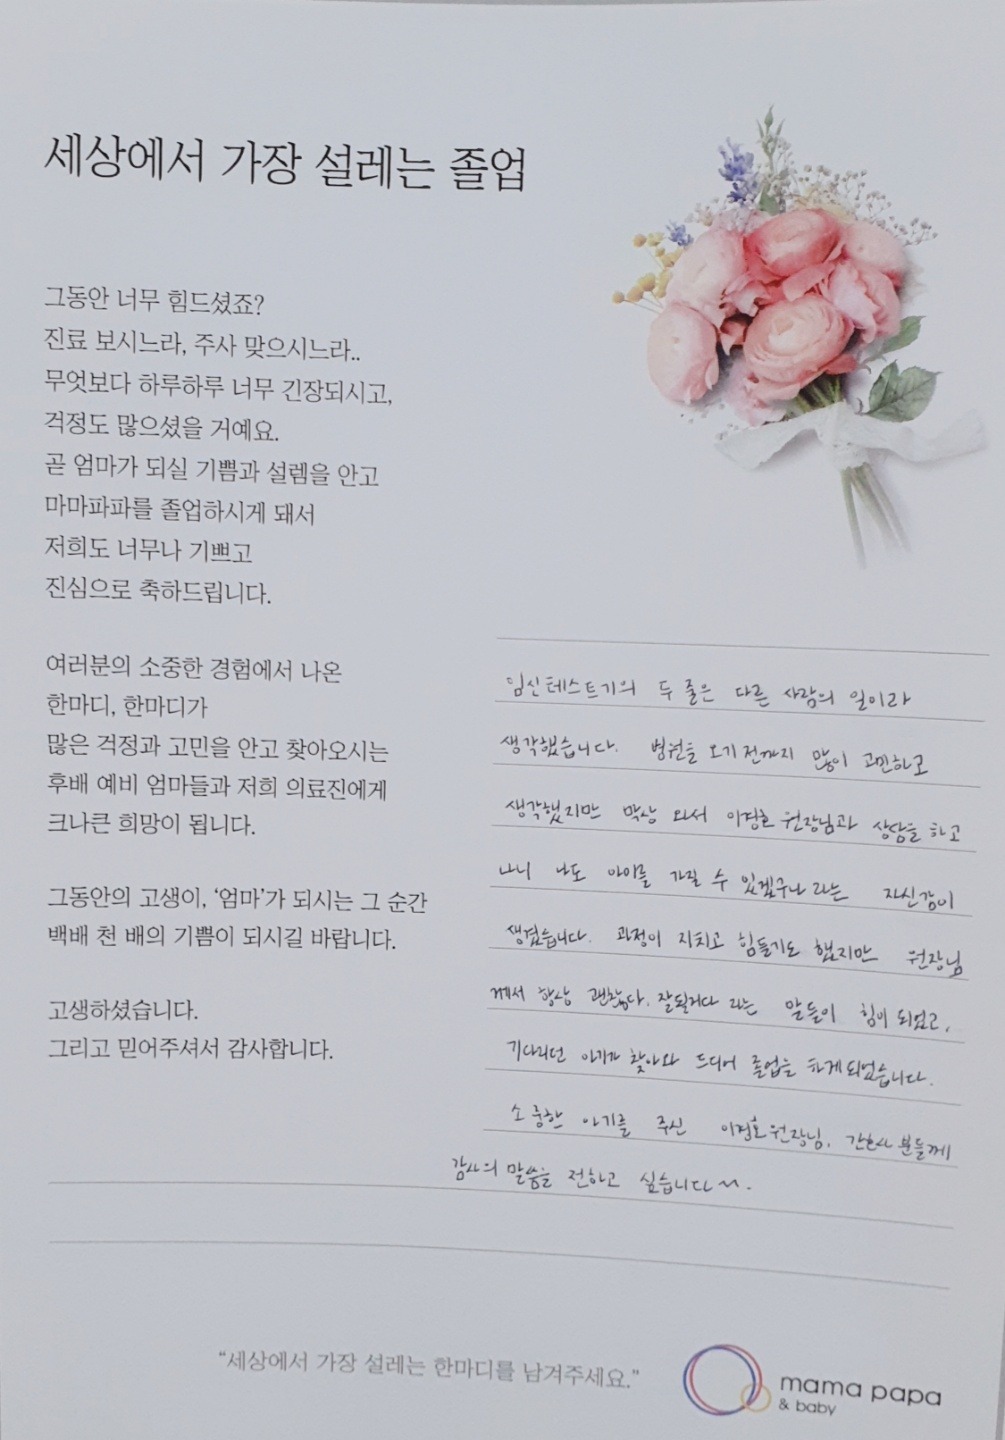 세상에서 가장 설레는 졸업
그동안 너무 힘드셨죠?
진료 보시느라, 주사 맞으시느라..
무엇보다 하루하루 너무 긴장되시고,
걱정도 많으셨을 거예요.
곧 엄마가 되실 기쁨과 설렘을 안고
마마파파를 졸업하시게 돼서
저희도 너무나 기쁘고
진심으로 축하드립니다.
여러분의 소중한 경험에서 나온
한마디, 한마디가
많은 걱정과 고민을 안고 찾아오시는
후배 예비 엄마들과 저희 의료진에게
크나큰 희망이 됩니다.
그동안의 고생이, ‘엄마’가 되시는 그 순간
백배 천 배의 기쁨이 되시길 바랍니다.
고생하셨습니다.
그리고 믿어주셔서 감사합니다.
임신테스트기의 두 줄은 다른 사람의 일이라
생각했습니다. 병원을 오기 전까지 많이 고민하고
생각했지만 막상 와서 이경호 원장님과 상담을 하고
나니 나도 아이를 가질 수 있겠구나 라는 자신감이
생겼습니다. 과정이 지치고 힘들기도 했지만 원장님
께서 항상 괜찮다, 잘될거다 라는 말들이 힘이 되었고,
기다리던 아기가 찾아와 드디어 졸업을 하게되었습니다.
소중한 아기를 주신 이경호원장님, 간호사 분들께
감사의 말씀을 전하고 싶습니다~.
“세상에서 가장 설레는 한마디를 남겨주세요.”
mama papa
& baby